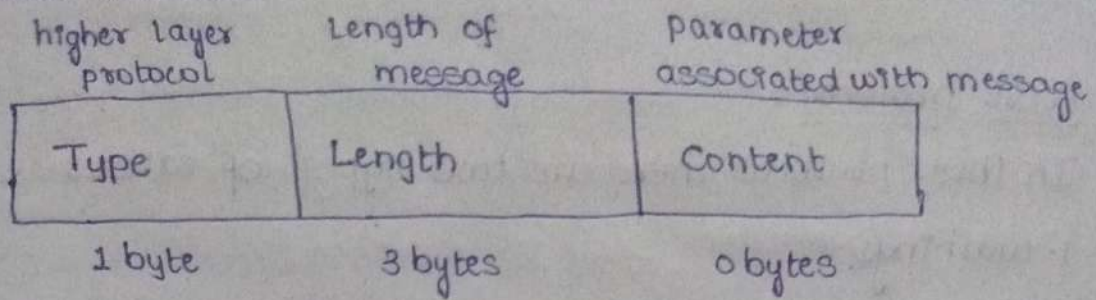 higher layer protocol
Length of message
parameter associated with message
Type
Length
Content
1 byte
3 bytes
0 bytes